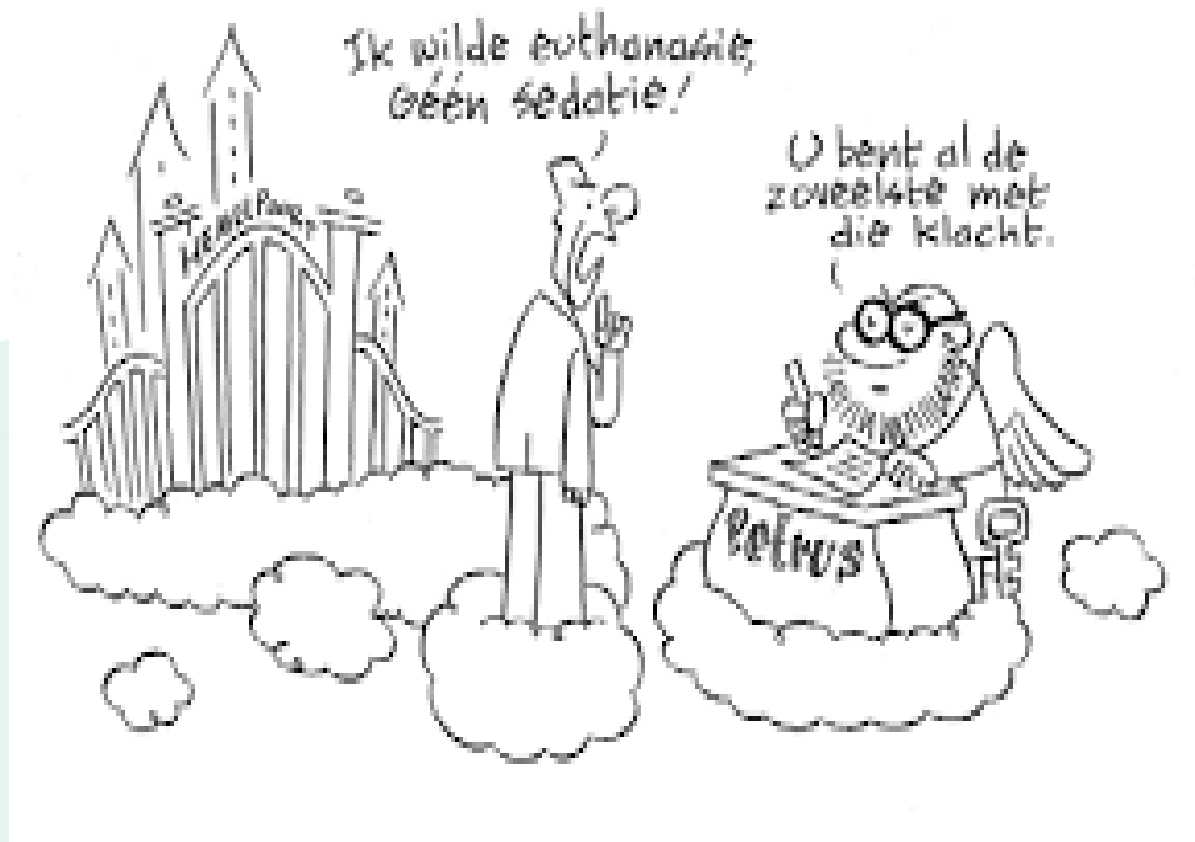 Ik wilde euthanasie,
Géén sedatie!
U bent al de
zoveelste met
die klacht.
HEMELPOORT
Petrus